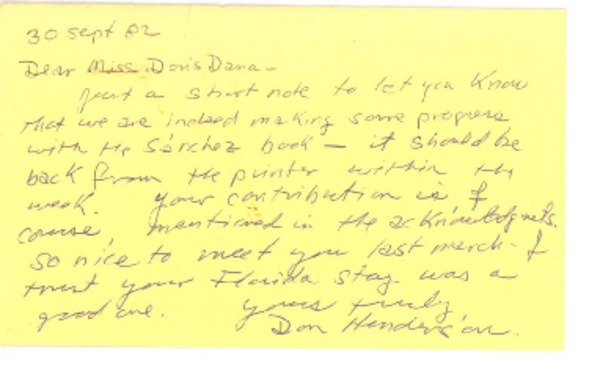 30 Sept 82
Dear Miss Doris Dana -
Just a short note to let you know
that we are indeed making some progress
with the Sánchez book — it should be
back from the printer within the
week. Your contribution is of
course, mentioned in the acknowledgments.
So nice to meet you last march - I
trust your Florida stay was a
good one. yours truly
Don Henderson.